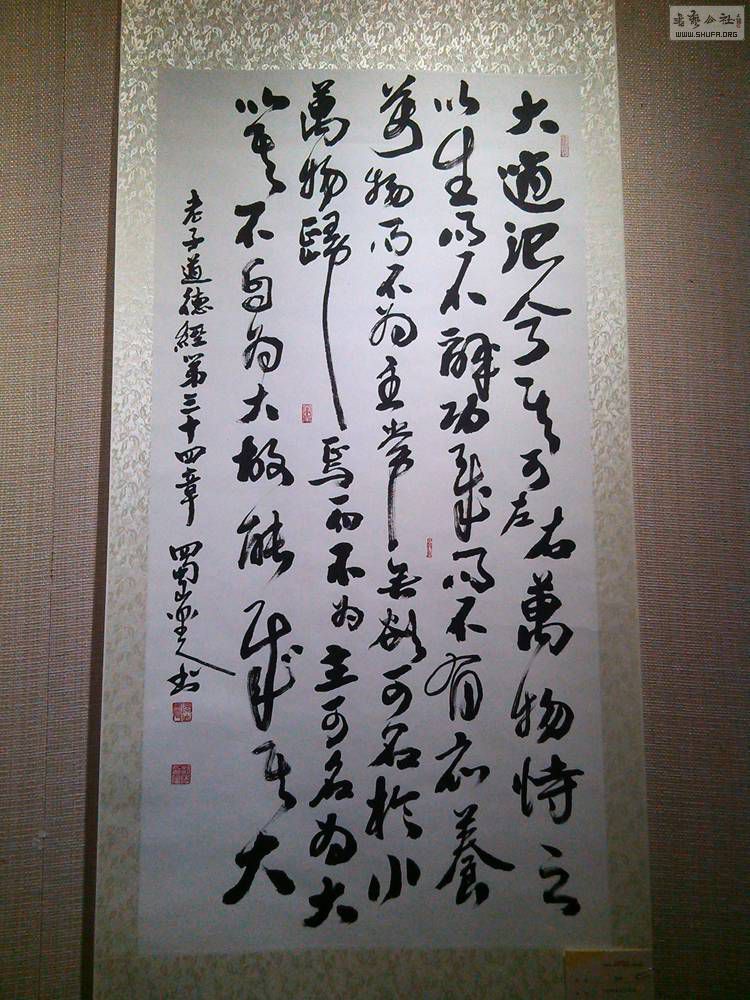 大道汜兮其可左右萬物恃之
以生而不辭功成而不有衣養
萬物而不為主常無欲可名於小
萬物歸焉而不為主可名為大
以其不自為大故能成其大
老子道德經第三十四章 蜀山人書
書藝公社
WWW.SHUFA.ORG